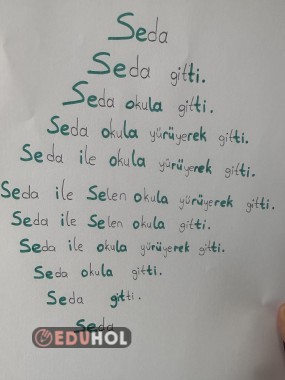 Seda
Seda gitti.
Seda okula gitti.
Seda okula yürüyerek gitti.
Seda ile okula yürüyerek gitti.
Seda ile Selen okula yürüyerek gitti.
Seda ile Selen okula gitti.
Seda ile okula yürüyerek gitti.
Seda okula gitti.
Seda gitti.
Seda
EDUHOL